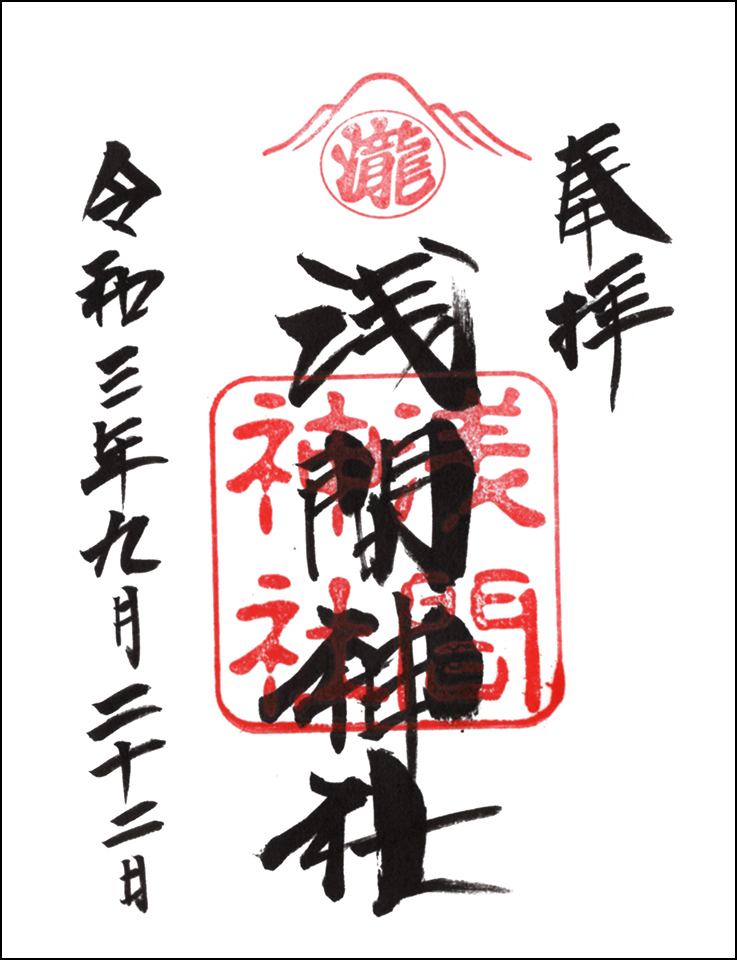 奉拝
瀧
浅間神社
浅間神社
令和三年九月二十二日